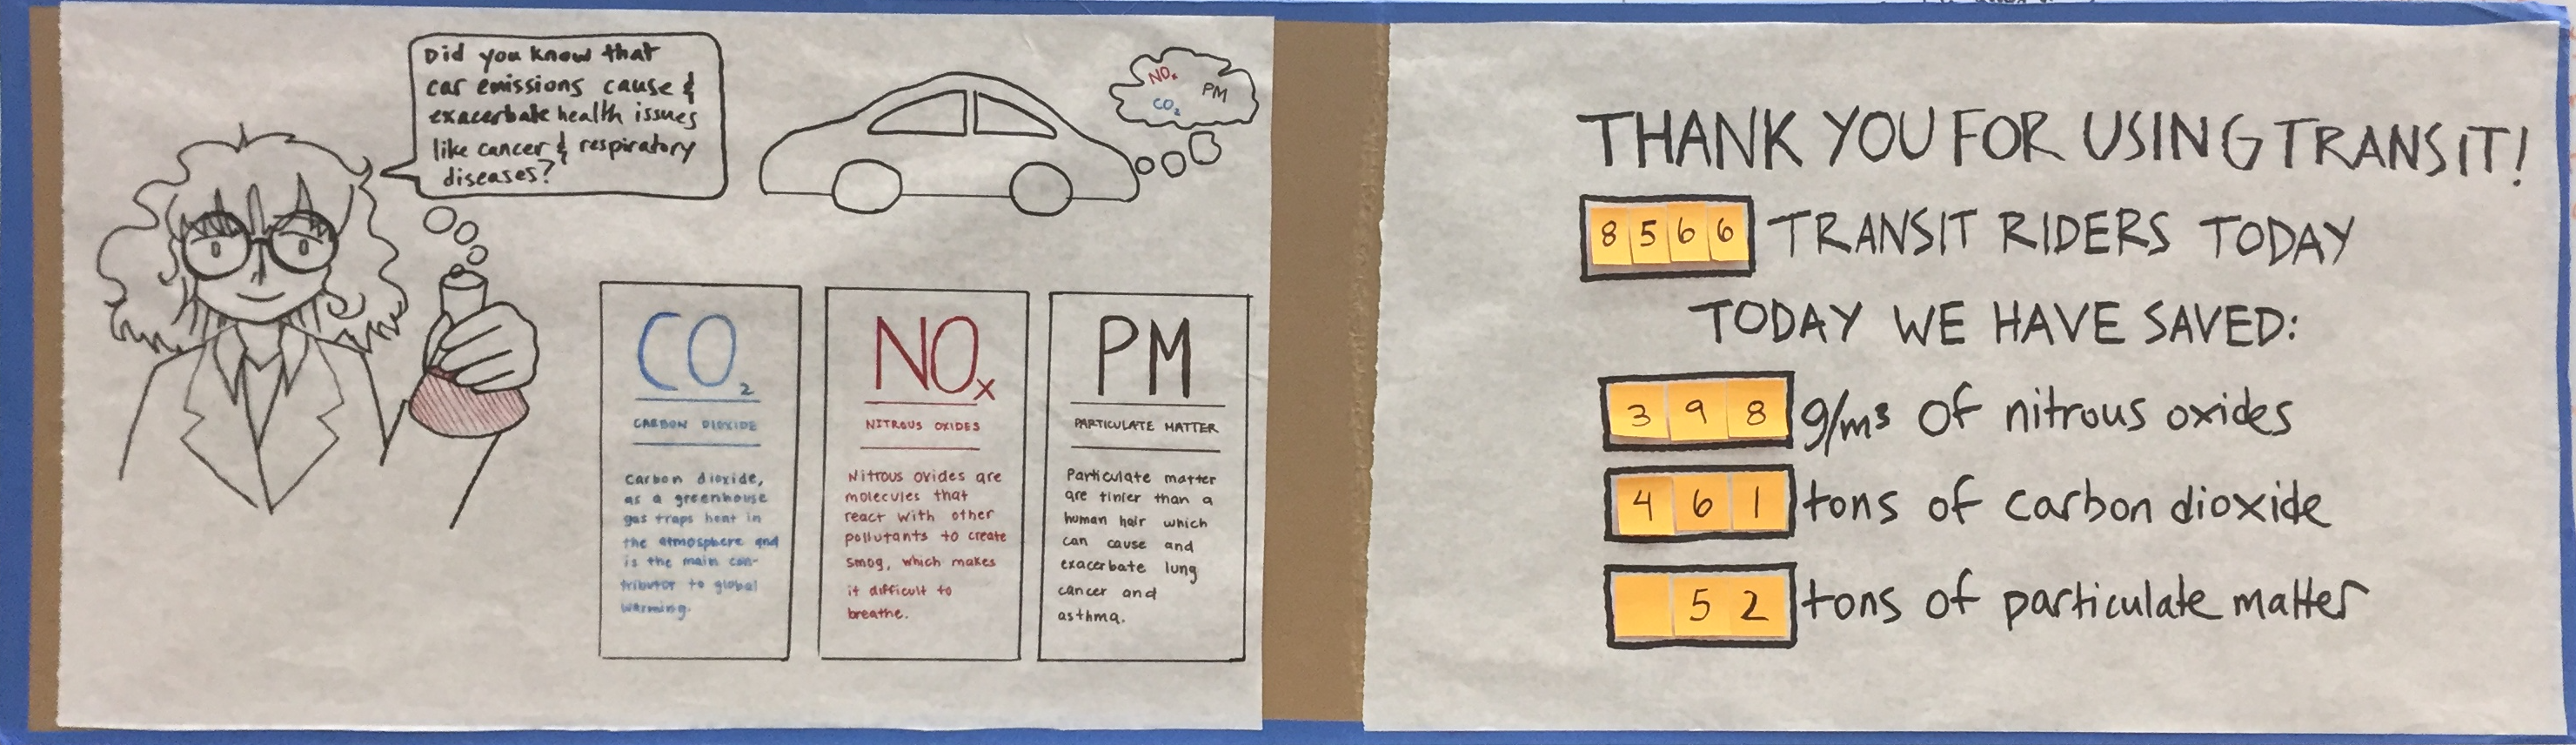 Did you know that
car emissions cause &
exacerbate health issues
like cancer & respiratory
diseases?
NOx
PM
CO2
CO2
CARBON DIOXIDE
Carbon dioxide,
as a greenhouse
gas traps heat in
the atmosphere and
is the main con-
tributor to global
warming.
NOx
NITROUS OXIDES
Nitrous oxides are
molecules that
react with other
pollutants to create
smog, which makes
it difficult to
breathe.
PM
PARTICULATE MATTER
Particulate matter
are tinier than a
human hair which
can cause and
exacerbate lung
cancer and
asthma.
THANK YOU FOR USING TRANSIT!
8566 TRANSIT RIDERS TODAY
TODAY WE HAVE SAVED:
398 g/m³ of nitrous oxides
461 tons of carbon dioxide
52 tons of particulate matter